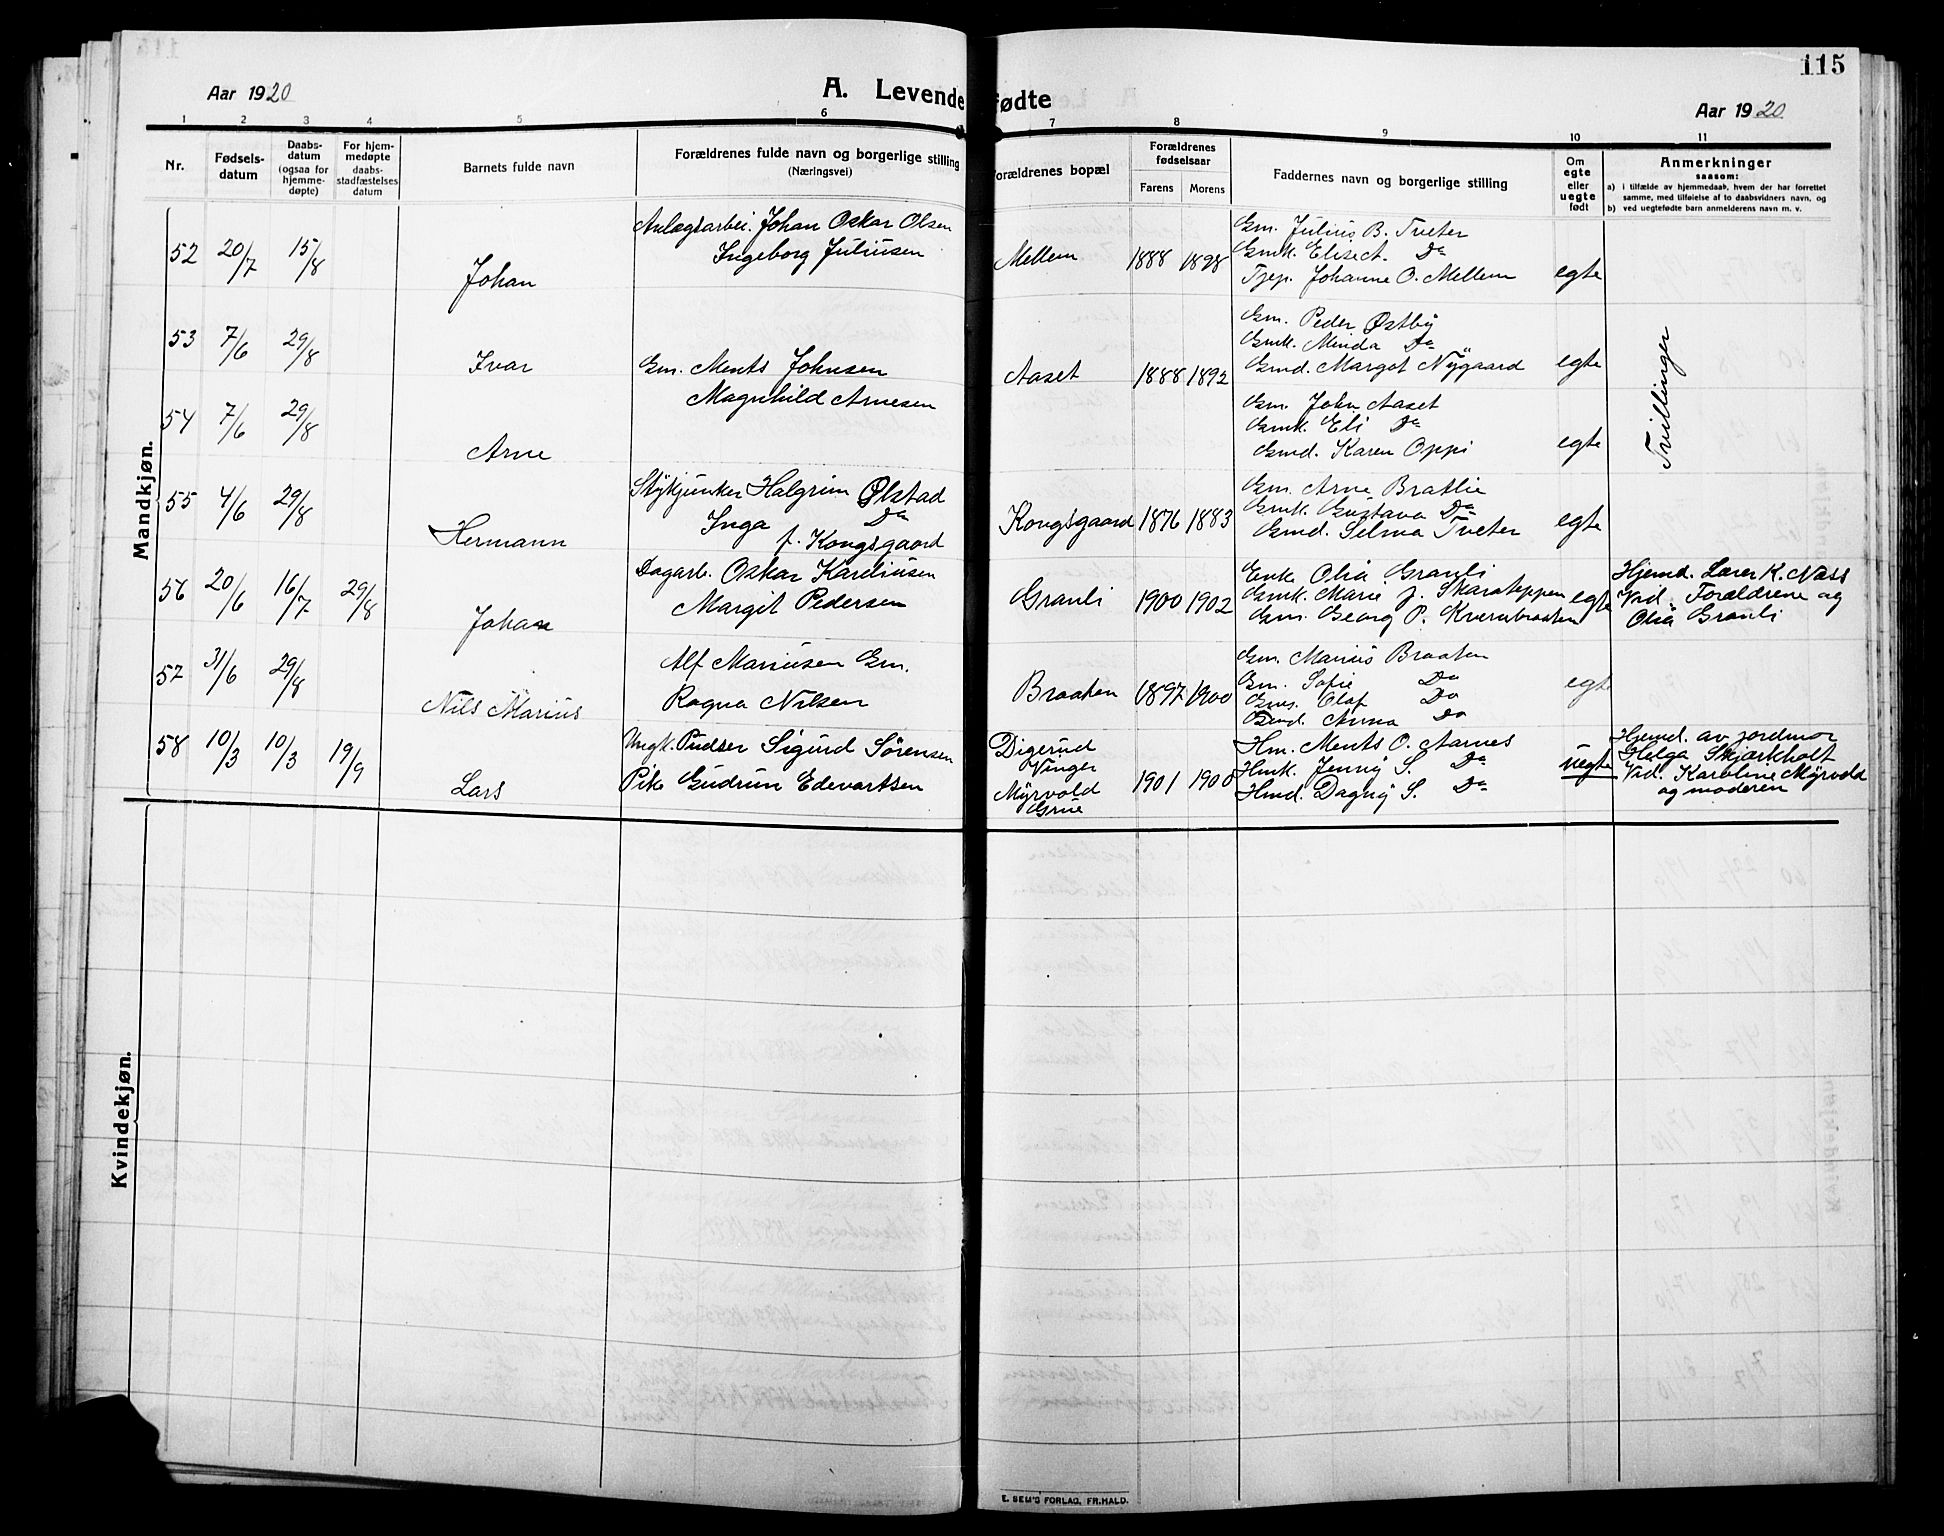 115
Aar 1920
A. Levende fødte
Aar 1920
1 2 3 4 5 6 7 8 9 10 11
Nr.
Fødsels-
datum
Daabs-
datum
(ogsaa for
hjemme-
døpte)
For hjem-
medøpte
daabs-
stadfæstelses
datum
Barnets fulde navn
Forældrenes fulde navn og borgerlige stilling
(Næringsvei)
Forældrenes bopæl
Forældrenes
fødselsaar
Farens Morens
Faddernes navn og borgerlige stilling
Om
egte
eller
uegte
født
Anmerkninger
saasom:
a) i tilfælde av hjemmedaab, hvem der har forrettet
samme, med tilføielse af to daabsvidners navn, og
b) ved uegtefødte barn anmelderens navn m. v.
Mandkjøn.
52 20/7 15/8
Johan
Anlægsarbei. Johan Oskar Olsen
Ingeborg Juliussen
Mellem 1888 1898
Gm. Julius B. Tveter
Gmk. Elise A. Do
Tjep. Johanne O. Mellem
egte
53 7/6 29/8
Ivar
Gm. Ments Johnsen
Magnhild Arnesen
Aaset 1888 1892
Gm. Peder Østby
Gmk. Minda Do
Gmd. Margot Nygaard
egte
Tvillinger
54 7/6 29/8
Arne
Gm. John Aaset
Gmk. Eli Do
Gmd. Karen Oppi
egte
55 4/6 29/8
Hermann
Stykjunker Halgrim Ølstad
Inga Do
f. Kongsgaard
Kongsgaard 1876 1883
Gm. Arne Bratlie
Gmk. Gustava Do
Gmd. Selma Tveter
egte
56 20/6 16/7 29/8
Johan
Dagarb. Oskar Kareliusen
Margit Pedersen
Granli 1900 1902
Enk. Olia Granli
Gmk. Marie J. Skarateppen
Gm. Georg P. Kvernbraaten
egte
Hjemd. Lærer K. Næss
Vid. Forældrene og
Olia Granli
57 31/6 29/8
Nils Marius
Alf Mariusen Gm.
Ragna Nilsen
Braaten 1897 1900
Gm. Marius Braaten
Gm. Sofie Do
Gms. Olaf Do
Gmd. Anna Do
egte
58 10/3 10/3 19/9
Lars
Ungk. Pudser Sigurd Sørensen
Pike Gudrun Edevartsen
Digerud
Vinger
Myrvold
Grue
1901 1900
Hm. Ments O. Aarnes
Hmk. Jenny S. Do
Hmd. Dagny S. Do
uegte
Hjemd. av jordmor
Helga Skjærkholt
Vid. Karoline Myrvold
og moderen
Kvindekjøn.
E. SEM'S FORLAG, FR.HALD.